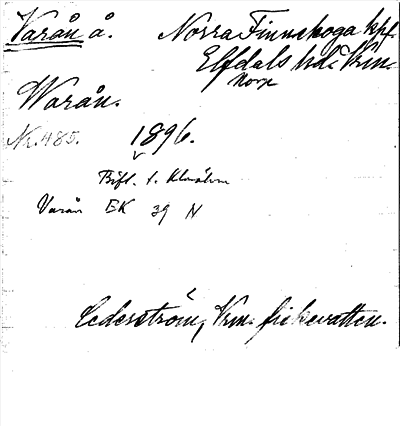 Varån å. Norra Finnskoga kpf.
Elfdals hd. Vrm.
norr
Warån.
Nr. 485. 1896.
Bifl. t. Klarälven
Varån EK 39 N
Cederström, Vrm. fiskevatten.